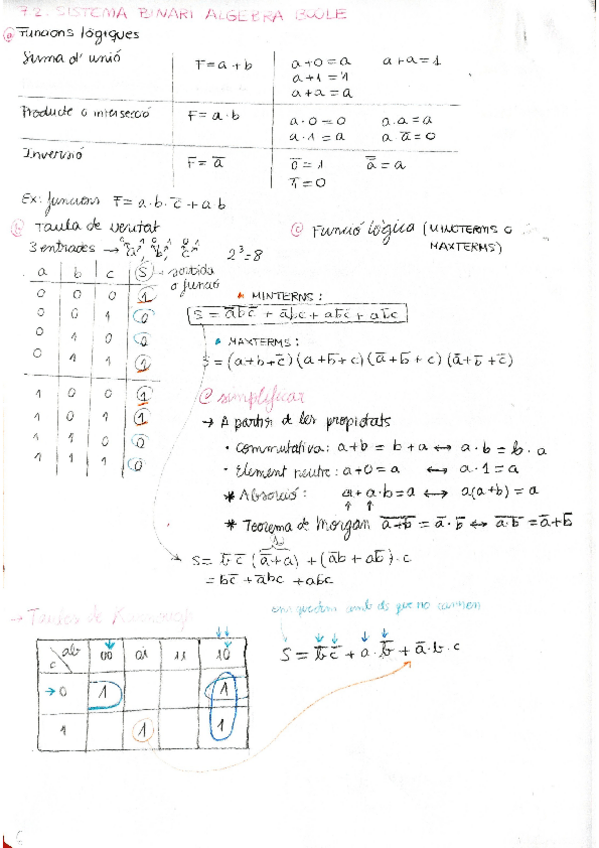 7.2. SISTEMA BINARI ALGEBRA BOOLE
a Funcions lògiques
Suma d' unió F = a + b a+0 = a a+a̅ = 1
a+1 = 1
a+a = a
Producte o intersecció F = a · b a · 0 = 0 a · a = a
a · 1 = a a · a̅ = 0
Inversió F = a̅ 0̅ = 1 a̿ = a
1̅ = 0
Ex: funcions F = a · b · c̅ + a b
b Taula de veritat
3 entrades → a, b, c 2³ = 8
a b c S → sortida o funció
0 0 0 1
0 0 1 0
0 1 0 0
0 1 1 1
1 0 0 1
1 0 1 1
1 1 0 0
1 1 1 0
c Funció lògica (MINTERMS O MAXTERMS)
MINTERNS:
S = a̅b̅c̅ + a̅bc + ab̅c̅ + ab̅c
MAXTERMS:
S = (a+b+c̅) (a+b̅+c) (a̅+b̅+c) (a̅+b̅+c̅)
simplificar
→ A partir de les propietats
· Commutativa: a+b = b+a ↔ a · b = b · a
· Element neutre: a+0 = a ↔ a · 1 = a
* Absorció: a+a·b = a ↔ a(a+b) = a
* Teorema de Morgan a̅+̅b̅ = a̅ · b̅ ↔ a̅b̅ = a̅+b̅
S = b̅ c̅ (a̅+a) + (a̅b + ab̅) · c
= b̅c̅ + a̅bc + ab̅c
→ Taules de Karnaugh
ens quedem amb els que no canvien
ab 00 01 11 10
c
→ 0 1 1
1 1 1
S = b̅ c̅ + a · b̅ + a̅ · b · c